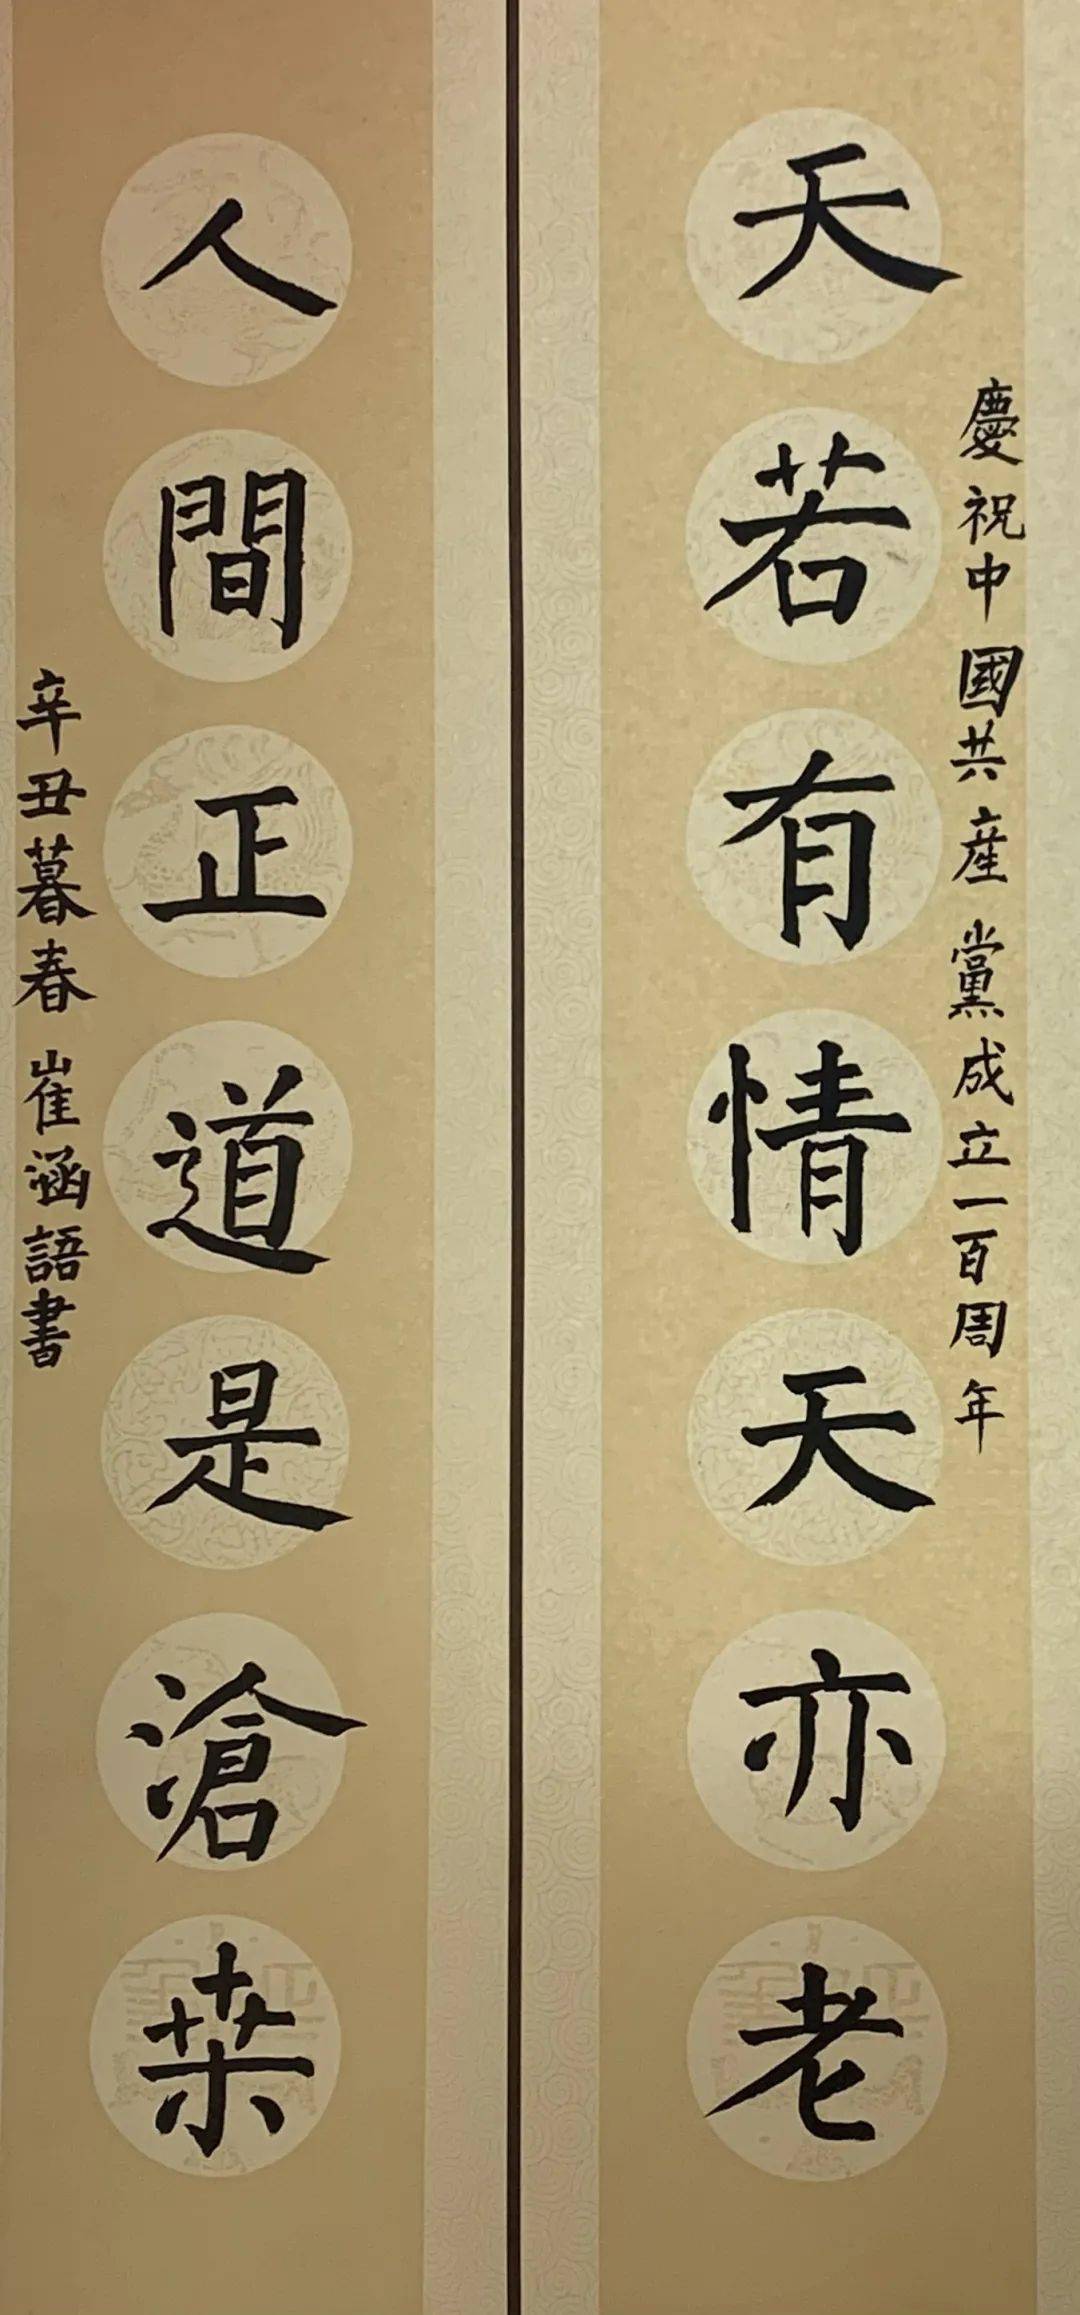 慶祝中國共産黨成立一百周年
天若有情天亦老
人間正道是滄桒
辛丑暮春崔涵語書